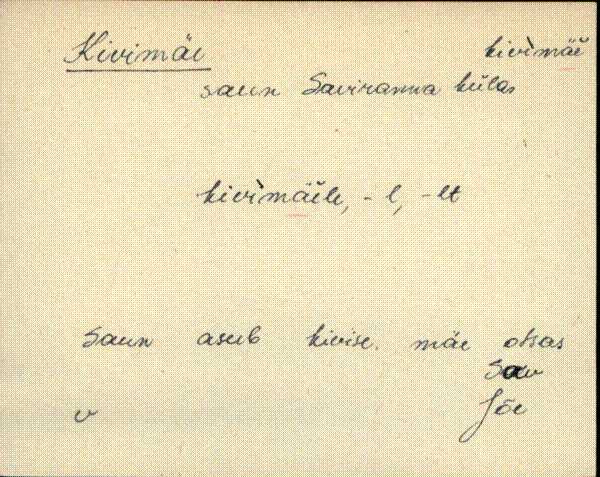 Kivimäe kiviˋmäě
saun Saviranna külas
kiviˋmäěle, -l, -lt
Saun asub kivise mäe otsas
Sav
v Jõe